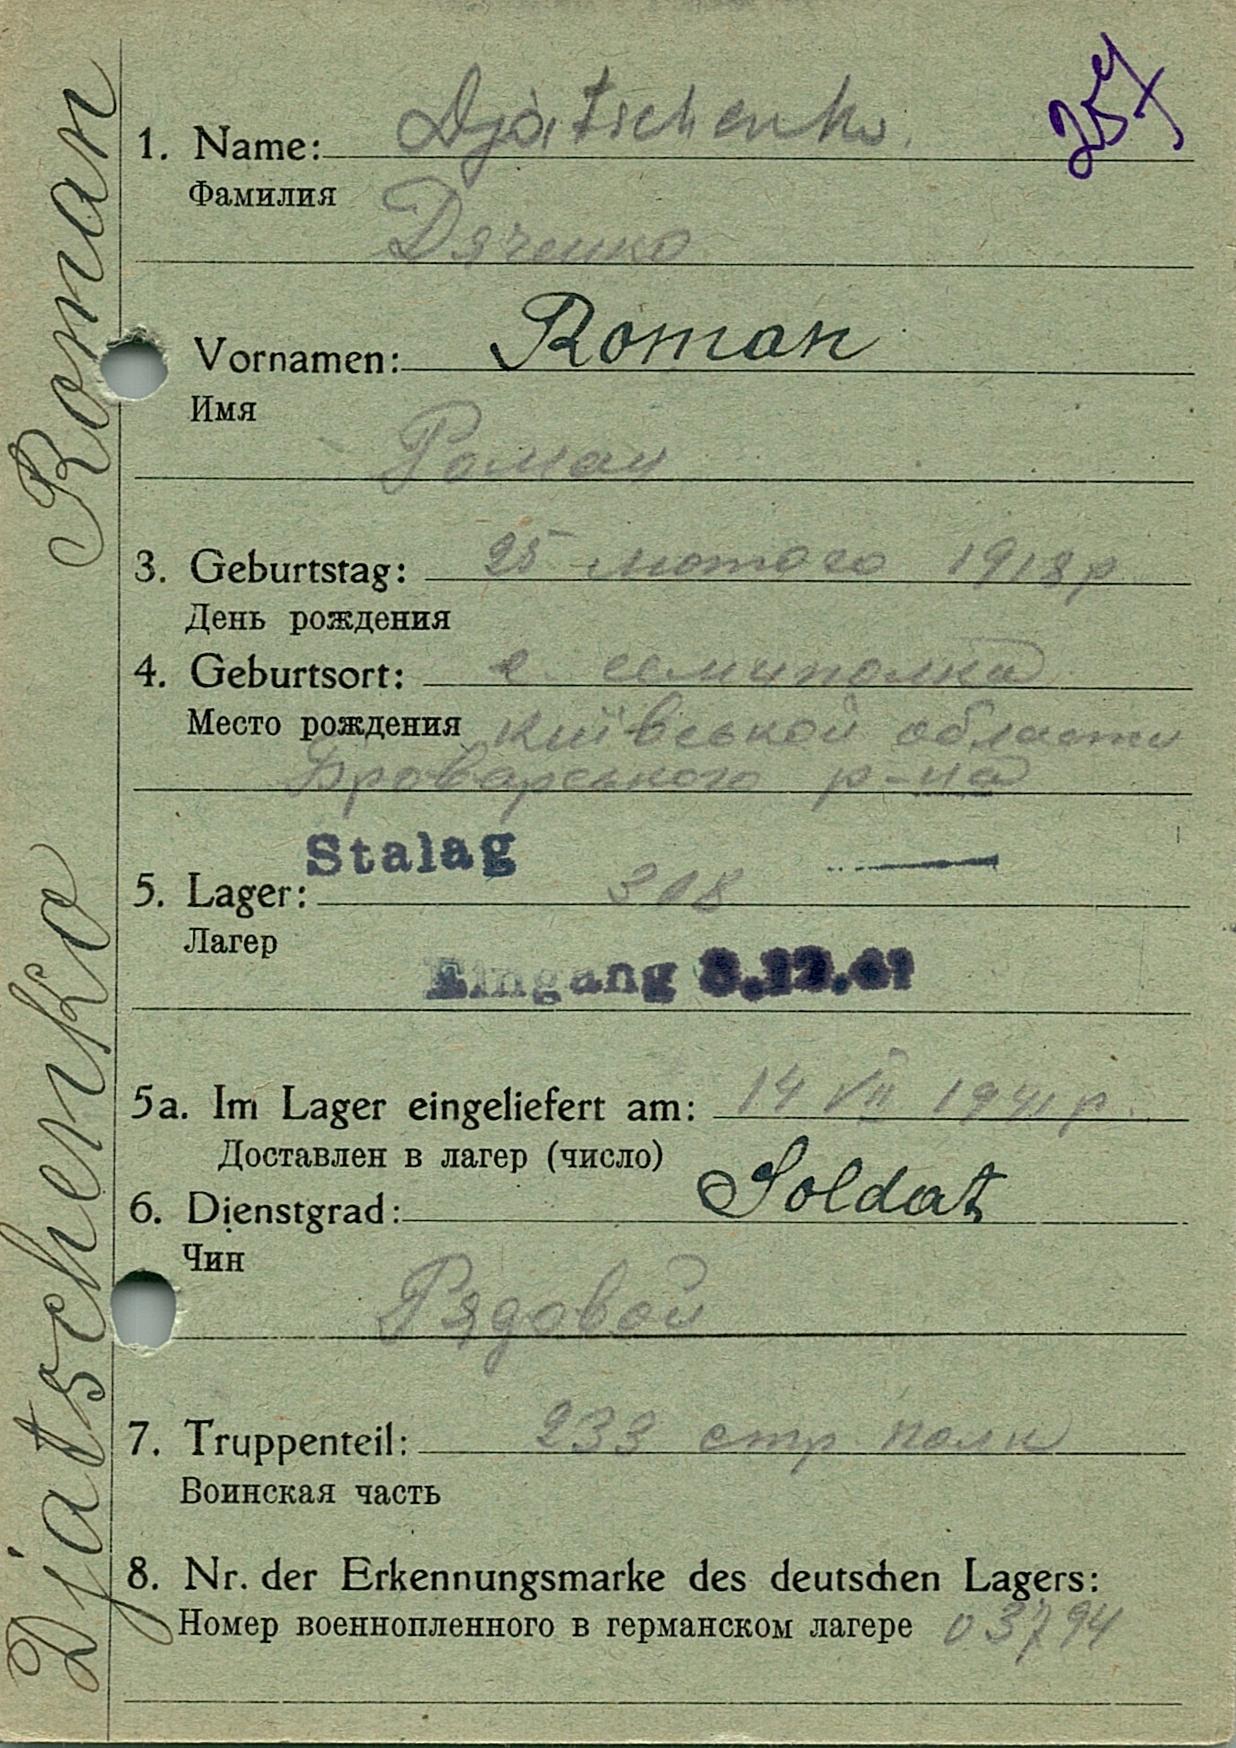 Djatschenko Roman
257
1. Name: Djatschenko
Фамилия
Дяченко
Vornamen: Roman
Имя
Роман
3. Geburtstag: 25 лютого 1918 р
День рождения
4. Geburtsort: с. семиполка
Место рождения київськой области
Броварського р-на
Stalag
5. Lager: 308
Лагер
Eingang 8.12.41
5a. Im Lager eingeliefert am: 14 VII 1941 р.
Доставлен в лагер (число)
6. Dienstgrad: Soldat
Чин
Рядовой
7. Truppenteil: 233 стр полк
Воинская часть
8. Nr. der Erkennungsmarke des deutschen Lagers:
Номер военнопленного в германском лагере 03794